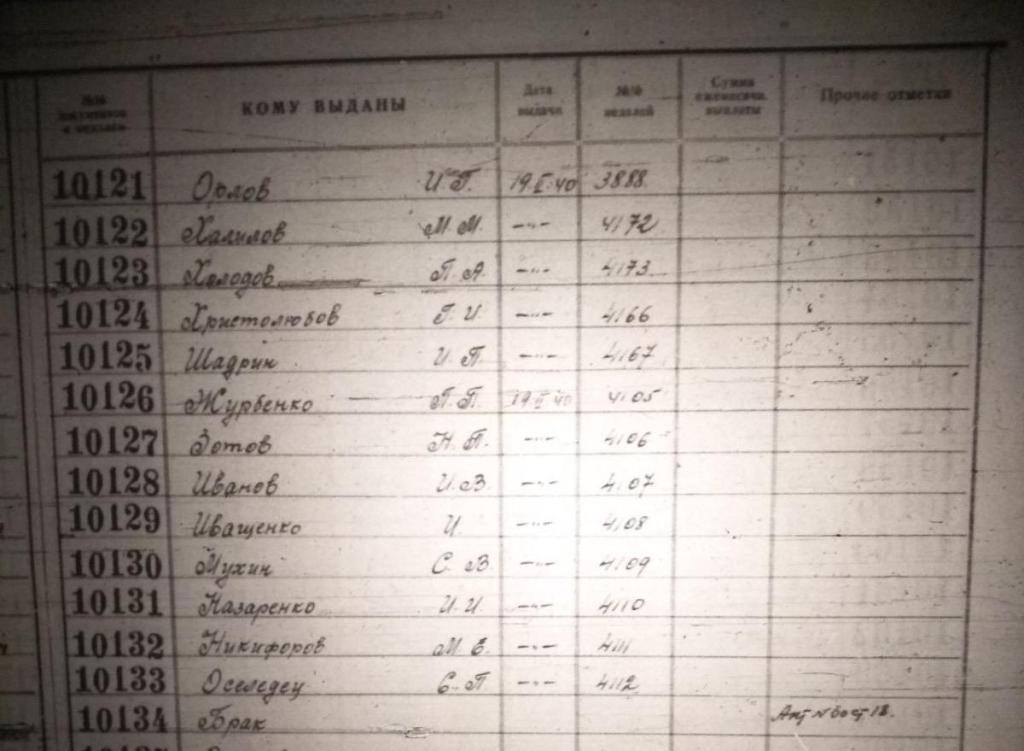 №№ документов к медалям КОМУ ВЫДАНЫ Дата выдачи №№ медалей Сумма ежемесячн. выплаты Прочие отметки
10121 Орлов И. П. 19.II.40 3888
10122 Халилов М. М. —"— 4172
10123 Холодов П. А. —"— 4173
10124 Христолюбов Г. И. —"— 4166
10125 Шадрин И. П. —"— 4167
10126 Журбенко П. П. 19 II 40 4105
10127 Зотов Н. П. —"— 4106
10128 Иванов И. В. —"— 4107
10129 Иващенко И. —"— 4108
10130 Мухин С. В. —"— 4109
10131 Назаренко И. И. —"— 4110
10132 Никифоров М. Е. —"— 4111
10133 Оселедец С. П. —"— 4112
10134 Брак Акт №